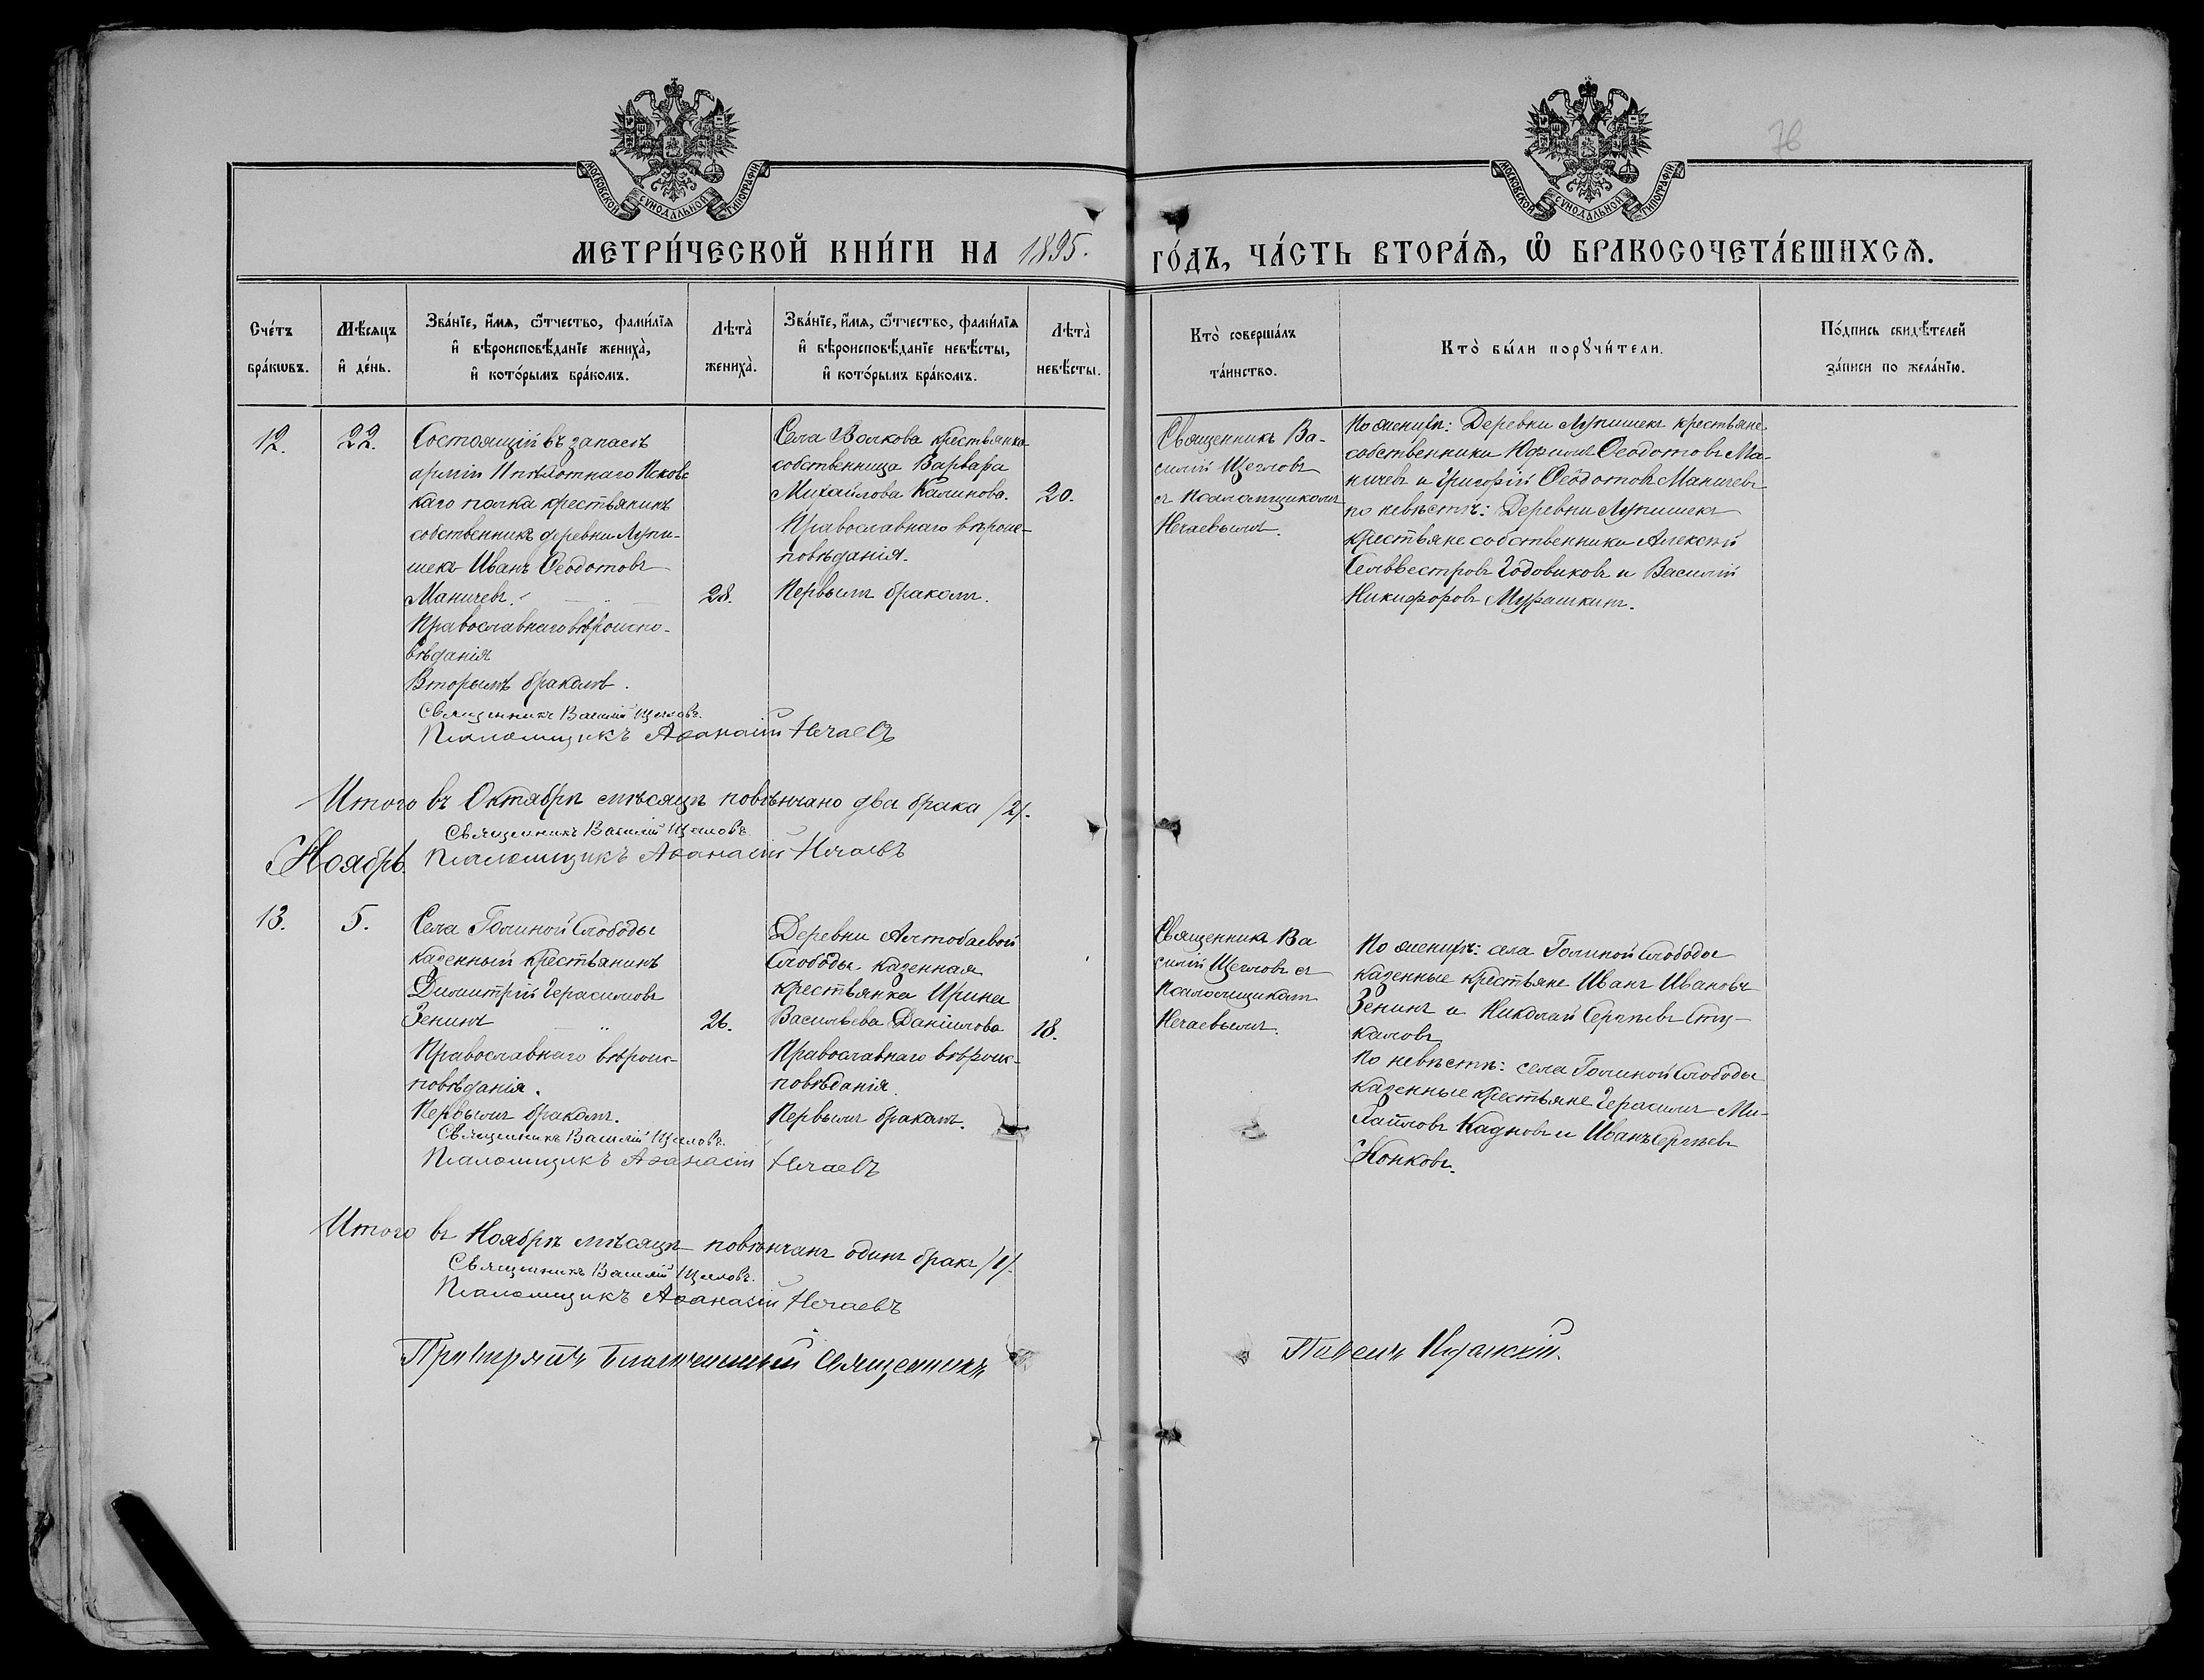 76
МОСКОВСКОЙ СѴНОДАЛЬНОЙ ТИПОГРАФІИ
МОСКОВСКОЙ СѴНОДАЛЬНОЙ ТИПОГРАФІИ
МЕТРИ́ЧЕСКОЙ КНИ́ГИ НА 1895. ГО́ДЪ, ЧА́СТЬ ВТОРА́Ѧ, Ѽ БРАКОСОЧЕТА́ВШИХСѦ.
Сче́тъ
бра́кѡвъ.
Мѣ́сяцъ
и҆ де́нь.
Зва́нїе, и҆́мѧ, ѻ҆́тчество, фами́лїѧ
и҆ вѣроисповѣ́данїе жениха̀,
и҆ кото́рымъ бра́комъ.
Лѣта̀
жениха̀.
Зва́нїе, и҆́мѧ, ѻ҆́тчество, фами́лїѧ
и҆ вѣроисповѣ́данїе невѣ́сты,
и҆ кото́рымъ бра́комъ.
Лѣта̀
невѣ́сты.
Кто̀ соверша́лъ
та́инство.
Кто̀ бы́ли порꙋчи́тели.
По́дпись свидѣ́телей
за́писи по жела́нїю.
12.
22.
Состоящій въ запасѣ
арміи 11 пѣхотнаго Псковс
каго полка крестьянинъ
собственникъ деревни Лупи-
шекъ Иванъ Ѳеодотовъ
Маничевъ.
Православнаго вѣроиспо-
вѣданія
Вторымъ бракомъ.
28.
Села Волкова крестьянка
собственница Варвара
Михайлова Калинова.
Православнаго вѣроис-
повѣданія.
Первымъ бракомъ.
20.
Священникъ Ва-
силій Щегловъ
съ псаломщикомъ
Нечаевымъ.
По женихѣ: Деревни Лупишекъ крестьяне
собственники Ѳеодотовъ Ма-
ничевъ и Григорій Ѳеодотовъ Маничевъ
по невѣстѣ: Деревни Лупишекъ
крестьяне собственники Алексѣй
Селивестровъ Годовиковъ и Василій
Никифоровъ Мурашкинъ.
Священникъ Василій Щегловъ.
Псаломщикъ Аѳанасій Нечаевъ
Итого въ Октябрѣ мѣсяцѣ повѣнчано два брака /2/.
Священникъ Василій Щегловъ.
Псаломщикъ Аѳанасій Нечаевъ
Ноябрь.
13.
5.
Села Голиной Слободы
казенный крестьянинъ
Димитрій Герасимовъ
Зенинъ
Православнаго вѣроис-
повѣданія.
Первымъ бракомъ.
26.
Деревни Алтобаевой
Слободы казенная
крестьянка Ирина
Васильева Данiилова
Православнаго вѣроис-
повѣданія
Первымъ бракомъ.
18.
Священникъ Ва
силій Щегловъ съ
Псаломщикомъ
Нечаевымъ.
По женихѣ: села Голиной Слободы
казенные крестьяне Иванъ Ивановъ
Зенинъ и Николай Сергѣевъ Сту-
каловъ
По невѣстѣ: села Голиной Слободы
казенные крестьяне Герасимъ Ми-
хайловъ Кадновъ и Иванъ Сергѣевъ
Конковъ.
Священникъ Василій Щегловъ.
Псаломщикъ Аѳанасій Нечаевъ
Итого въ Ноябрѣ мѣсяцѣ повѣнчанъ одинъ бракъ /1/.
Священникъ Василій Щегловъ.
Псаломщикъ Аѳанасій Нечаевъ
Благочинный Священникъ Павелъ